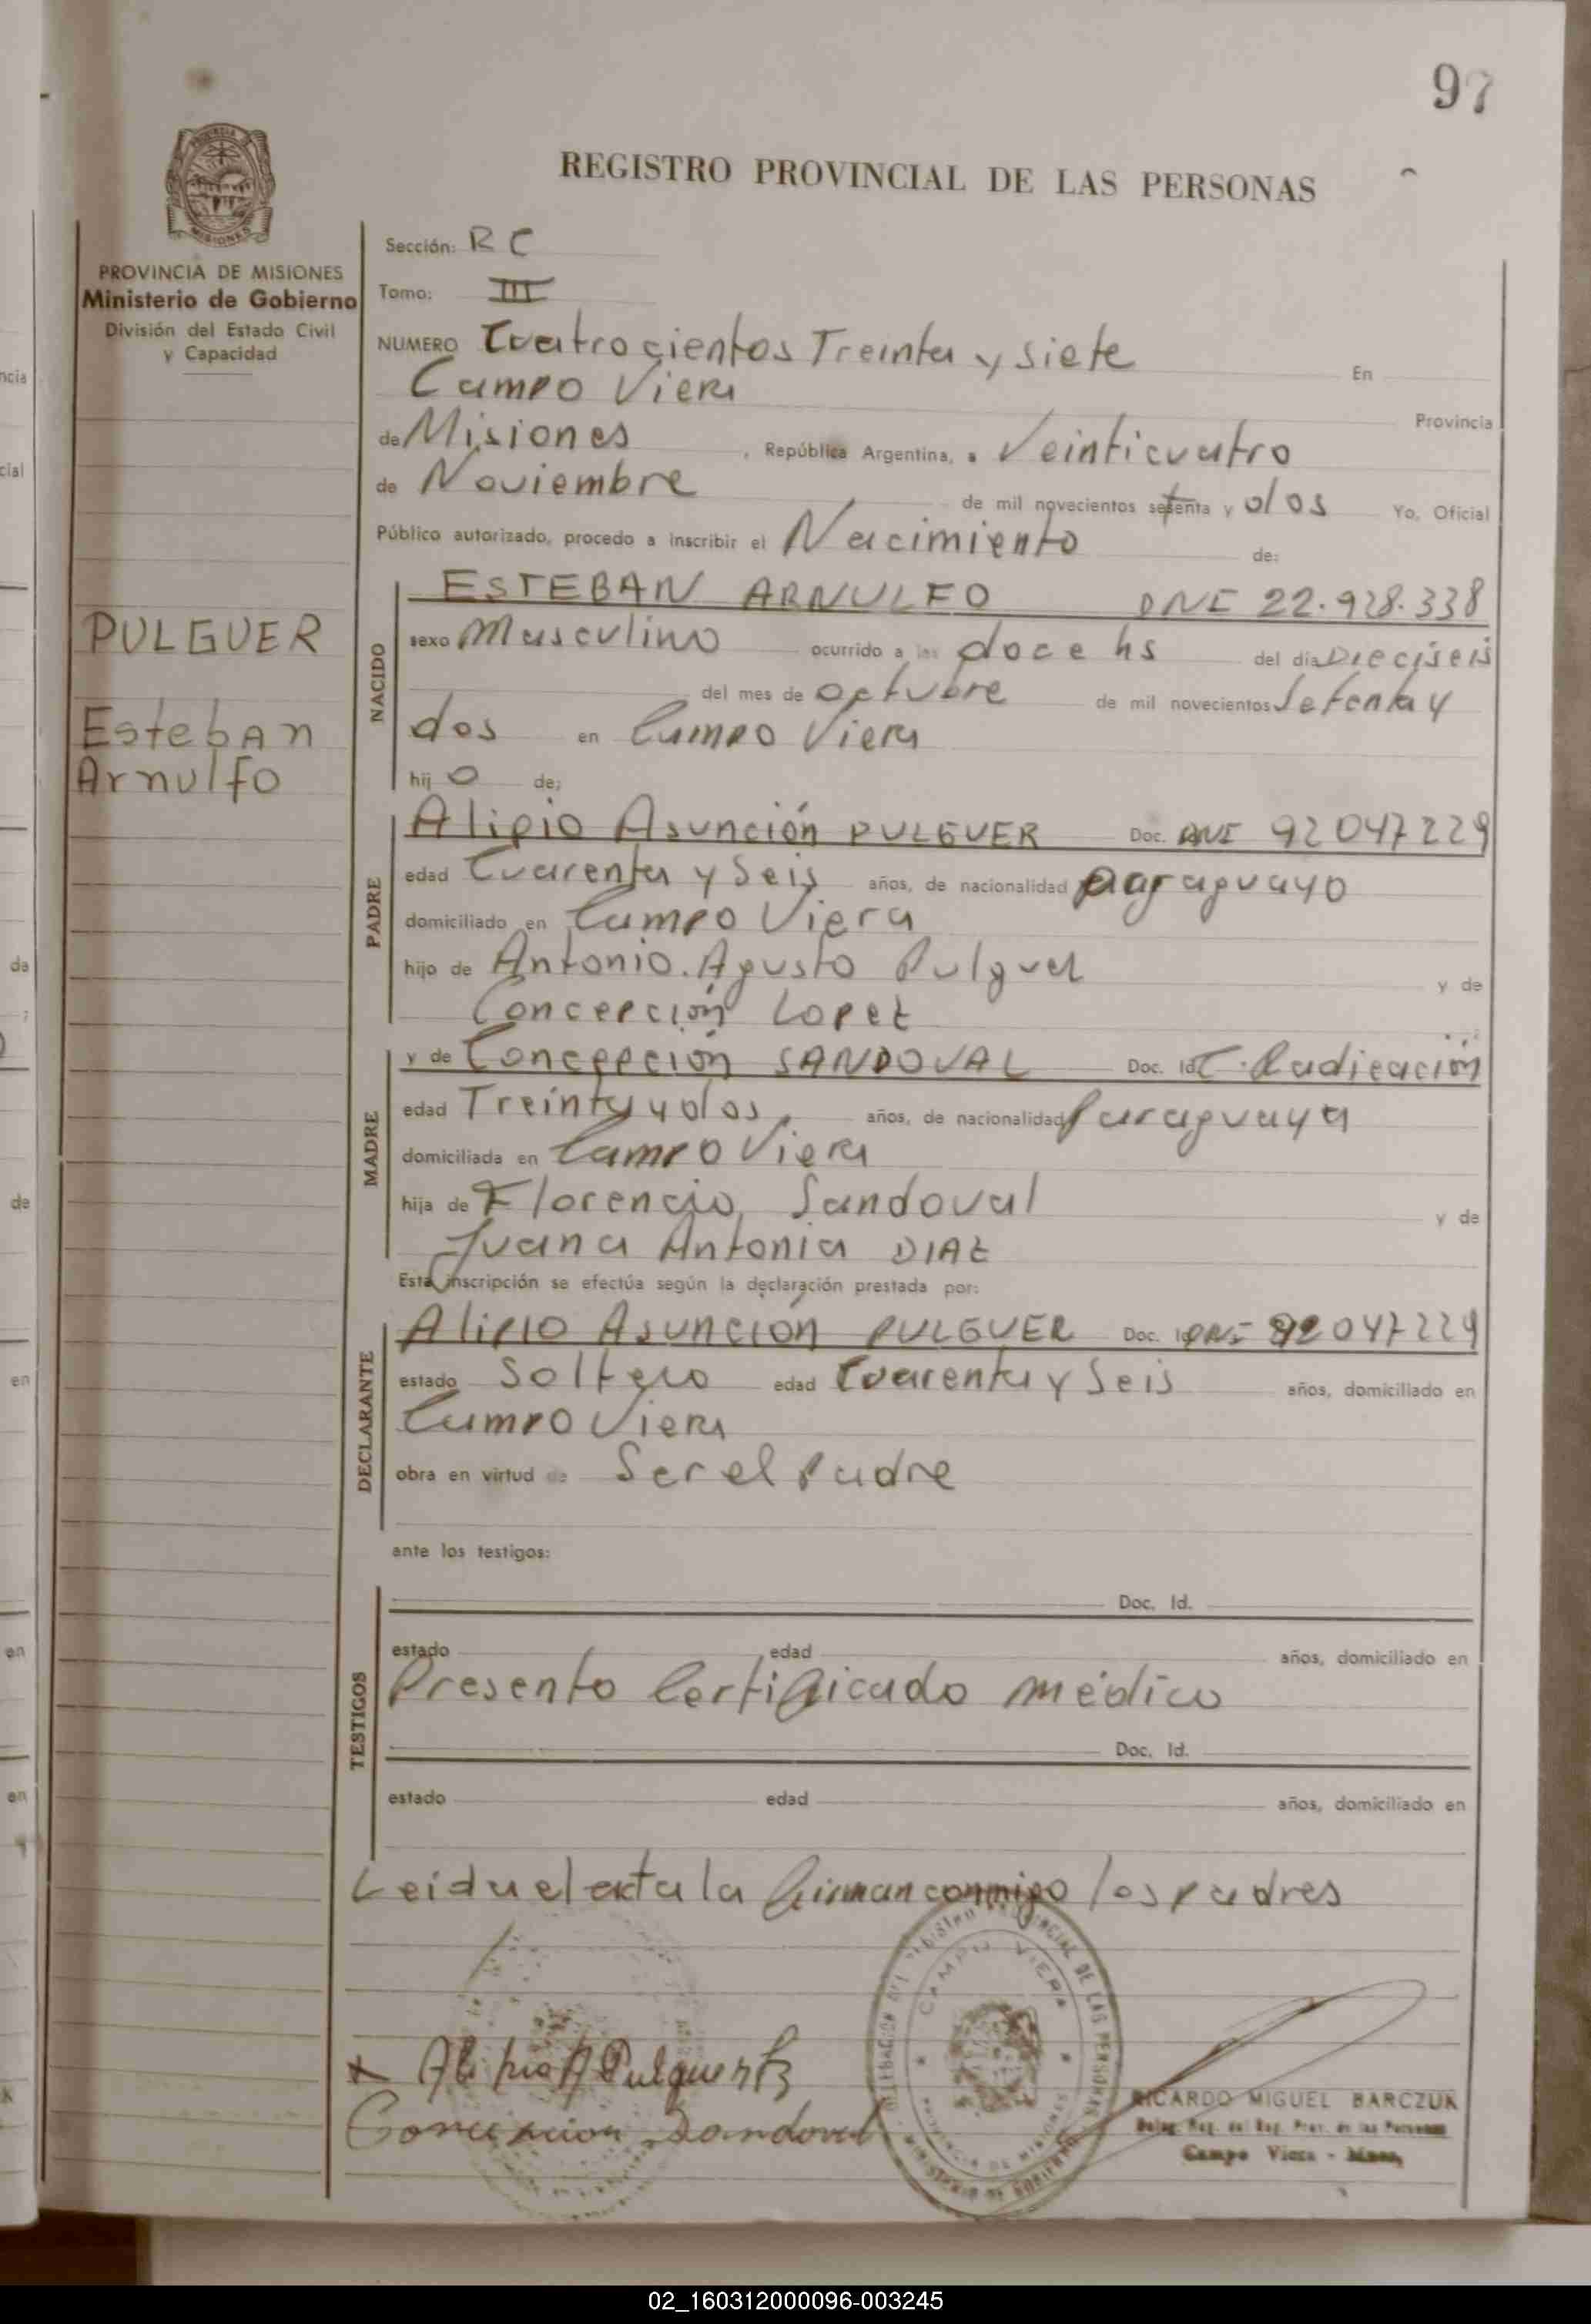 97
REGISTRO PROVINCIAL DE LAS PERSONAS
PROVINCIA DE MISIONES
Ministerio de Gobierno
División del Estado Civil
y Capacidad
PULGUER
Esteban
Arnulfo
Sección: RC
Tomo: III
NUMERO Cuatrocientos Treinta y siete En
Campo Viera Provincia
de Misiones, República Argentina, a Veinticuatro
de Noviembre de mil novecientos setenta y dos Yo, Oficial
Público autorizado, procedo a inscribir el Nacimiento de:
NACIDO
ESTEBAN ARNULFO DNI 22.928.338
sexo Masculino ocurrido a las doce hs del día Dieciseis
del mes de octubre de mil novecientos Setenta y
dos en Campo Viera
hijo de:
PADRE
Alipio Asunción PULGUER Doc. DNI 92047229
edad Cuarenta y Seis años, de nacionalidad paraguayo
domiciliado en Campo Viera
hijo de Antonio. Agusto Pulguer y de
Concepción Lopez
MADRE
y de Concepción SANDOVAL Doc. Id C. Radicación
edad Treinta y dos, años, de nacionalidad Paraguaya
domiciliada en Campo Viera
hija de Florencio Sandoval y de
Juana Antonia DIAZ
Esta inscripción se efectúa según la declaración prestada por:
DECLARANTE
Alipio Asunción PULGUER Doc. Id DNI 92047229
estado Soltero edad Cuarenta y Seis años, domiciliado en
Campo Viera
obra en virtud de Ser el Padre
ante los testigos:
TESTIGOS
Doc. Id.
estado edad años, domiciliado en
Presento Certificado médico
Doc. Id.
estado edad años, domiciliado en
Leida el acta la firman conmigo los padres
Concepcion Sandoval
CAMPO VIERA
RICARDO MIGUEL BARCZUK
Campo Viera - Mnes.
02_160312000096-003245